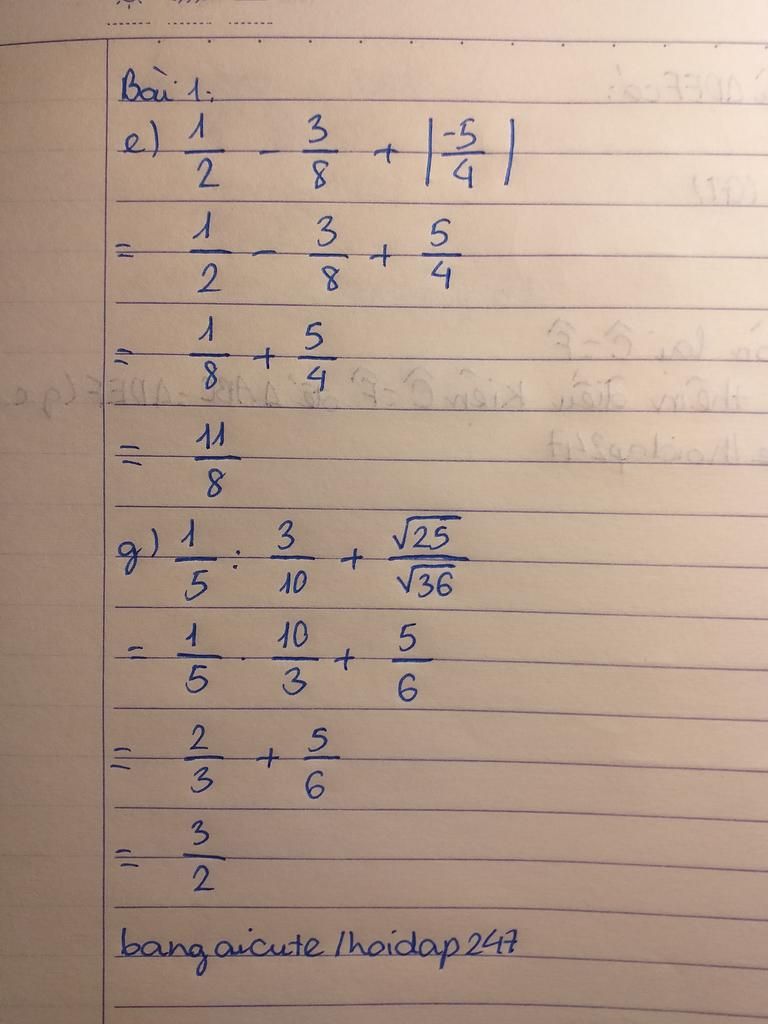 Bài 1:
e) 1/2 - 3/8 + |-5/4|
= 1/2 - 3/8 + 5/4
= 1/8 + 5/4
= 11/8
g) 1/5 : 3/10 + √25/√36
= 1/5 . 10/3 + 5/6
= 2/3 + 5/6
= 3/2
bangaicute/hoidap247